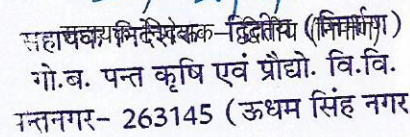 सहायक निदेशक-द्वितीय (निर्माण)
गो.ब. पन्त कृषि एवं प्रौद्यो. वि.वि.
पन्तनगर- 263145 (ऊधम सिंह नगर